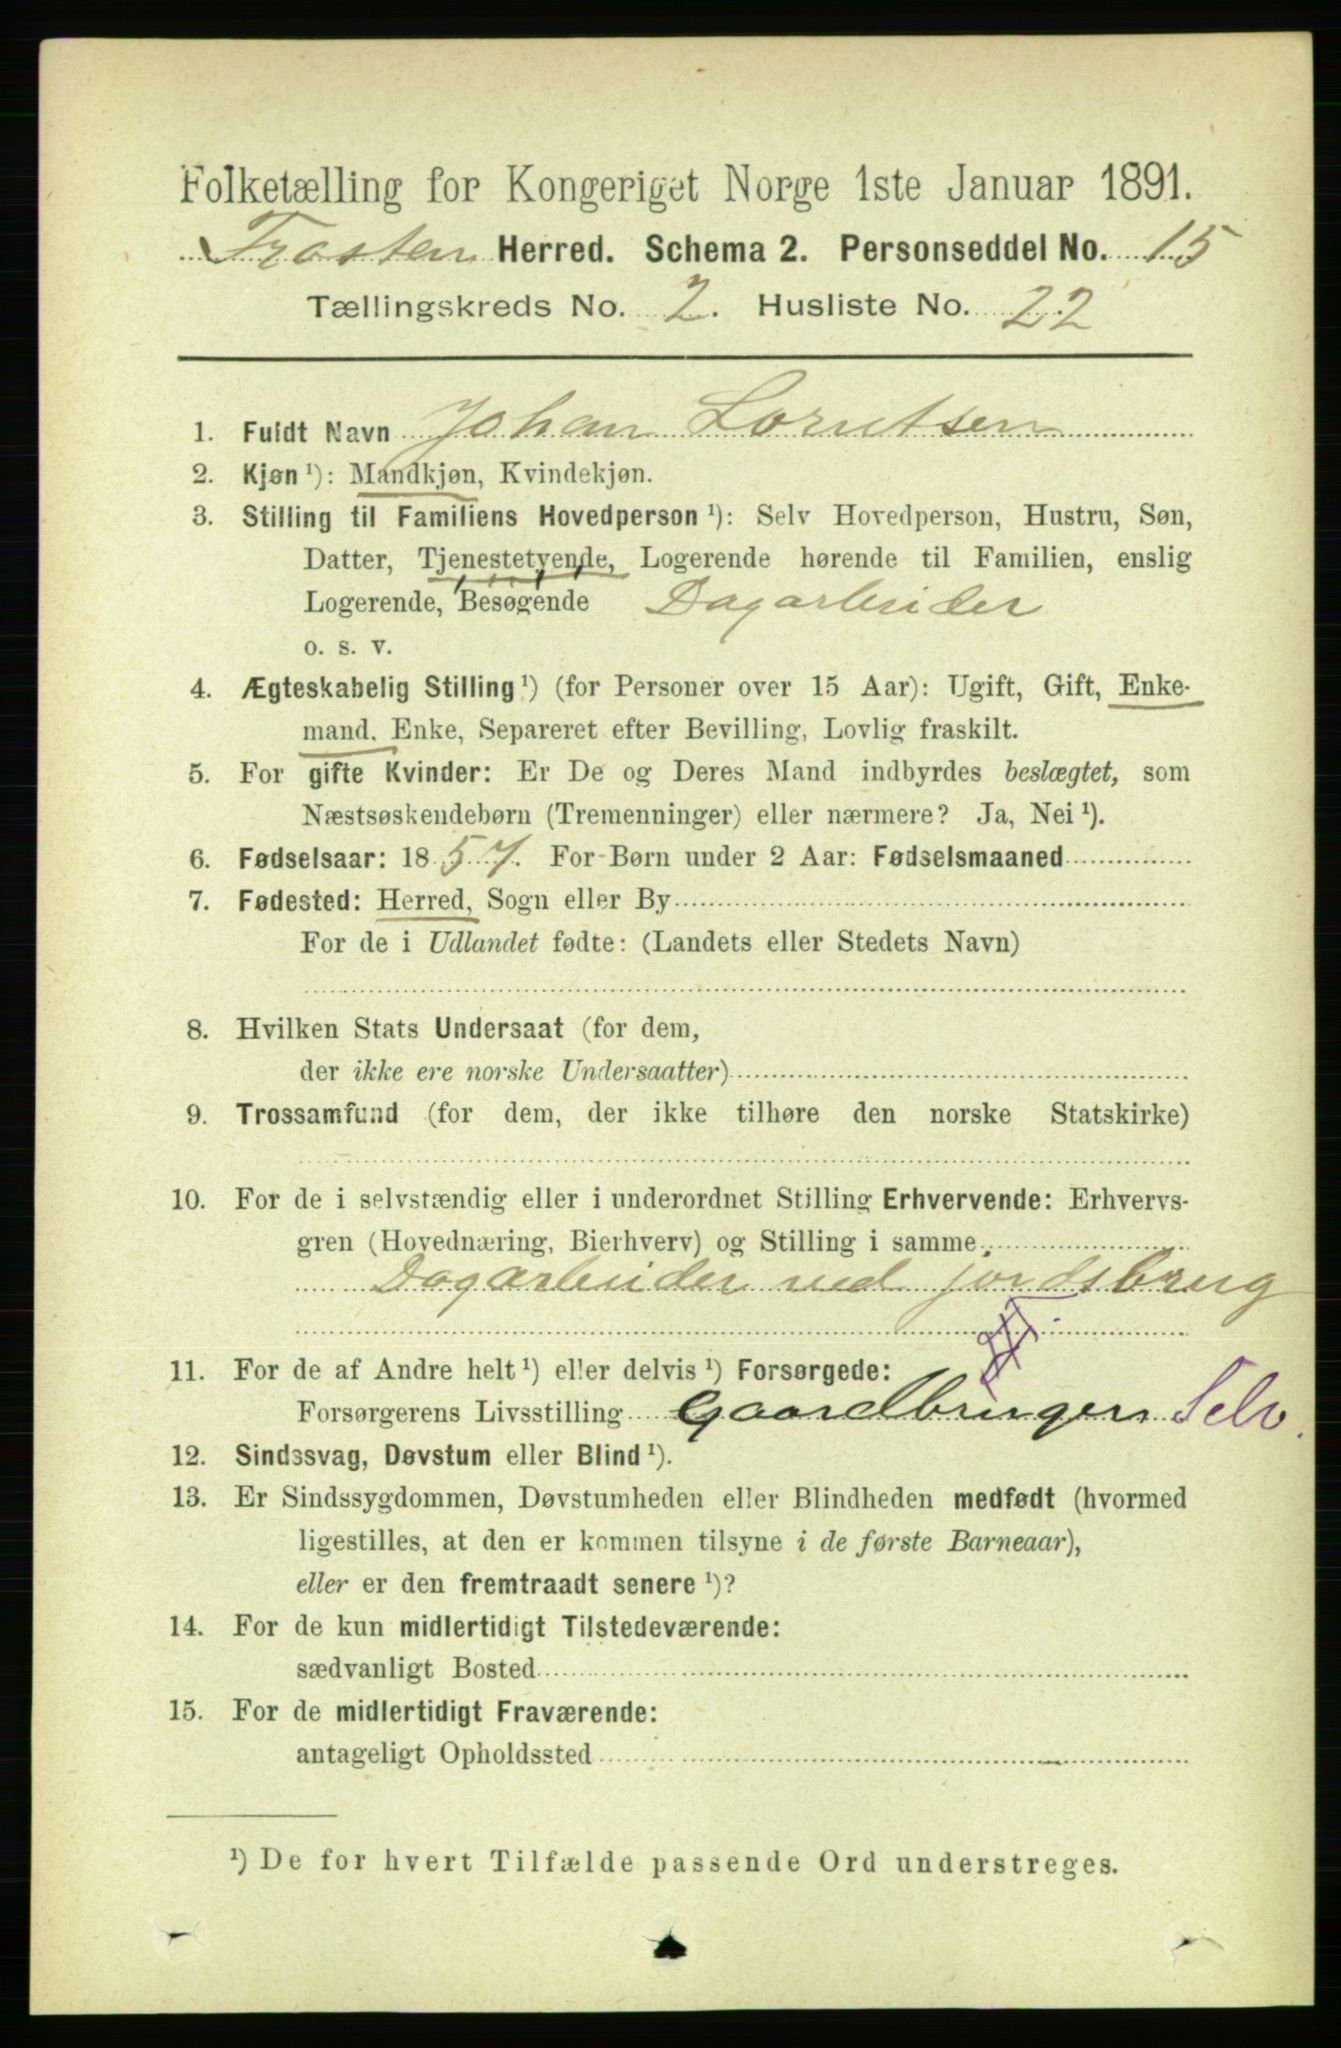 Folketælling for Kongeriget Norge 1ste Januar 1891.
Frosten Herred. Schema 2. Personseddel No. 15
Tællingskreds No. 2. Husliste No. 22
1. Fuldt Navn Johan Lorntsen
2. Kjøn ¹): Mandkjøn, Kvindekjøn.
3. Stilling til Familiens Hovedperson ¹): Selv Hovedperson, Hustru, Søn,
Datter, Tjenestetyende, Logerende hørende til Familien, enslig
Logerende, Besøgende Dagarbeider
o. s. v.
4. Ægteskabelig Stilling ¹) (for Personer over 15 Aar): Ugift, Gift, Enke-
mand, Enke, Separeret efter Bevilling, Lovlig fraskilt.
5. For gifte Kvinder: Er De og Deres Mand indbyrdes beslægtet, som
Næstsøskendebørn (Tremenninger) eller nærmere? Ja, Nei ¹).
6. Fødselsaar: 1857. For Børn under 2 Aar: Fødselsmaaned
7. Fødested: Herred, Sogn eller By
For de i Udlandet fødte: (Landets eller Stedets Navn)
8. Hvilken Stats Undersaat (for dem,
der ikke ere norske Undersaatter)
9. Trossamfund (for dem, der ikke tilhøre den norske Statskirke)
10. For de i selvstændig eller i underordnet Stilling Erhvervende: Erhvervs-
gren (Hovednæring, Bierhverv) og Stilling i samme
Dagarbeider ved jordsbrug
11. For de af Andre helt ¹) eller delvis ¹) Forsørgede:
Forsørgerens Livsstilling Gaardbruger Selv.
12. Sindssvag, Døvstum eller Blind ¹).
13. Er Sindssygdommen, Døvstumheden eller Blindheden medfødt (hvormed
ligestilles, at den er kommen tilsyne i de første Barneaar),
eller er den fremtraadt senere ¹)?
14. For de kun midlertidigt Tilstedeværende:
sædvanligt Bosted
15. For de midlertidigt Fraværende:
antageligt Opholdssted
¹) De for hvert Tilfælde passende Ord understreges.